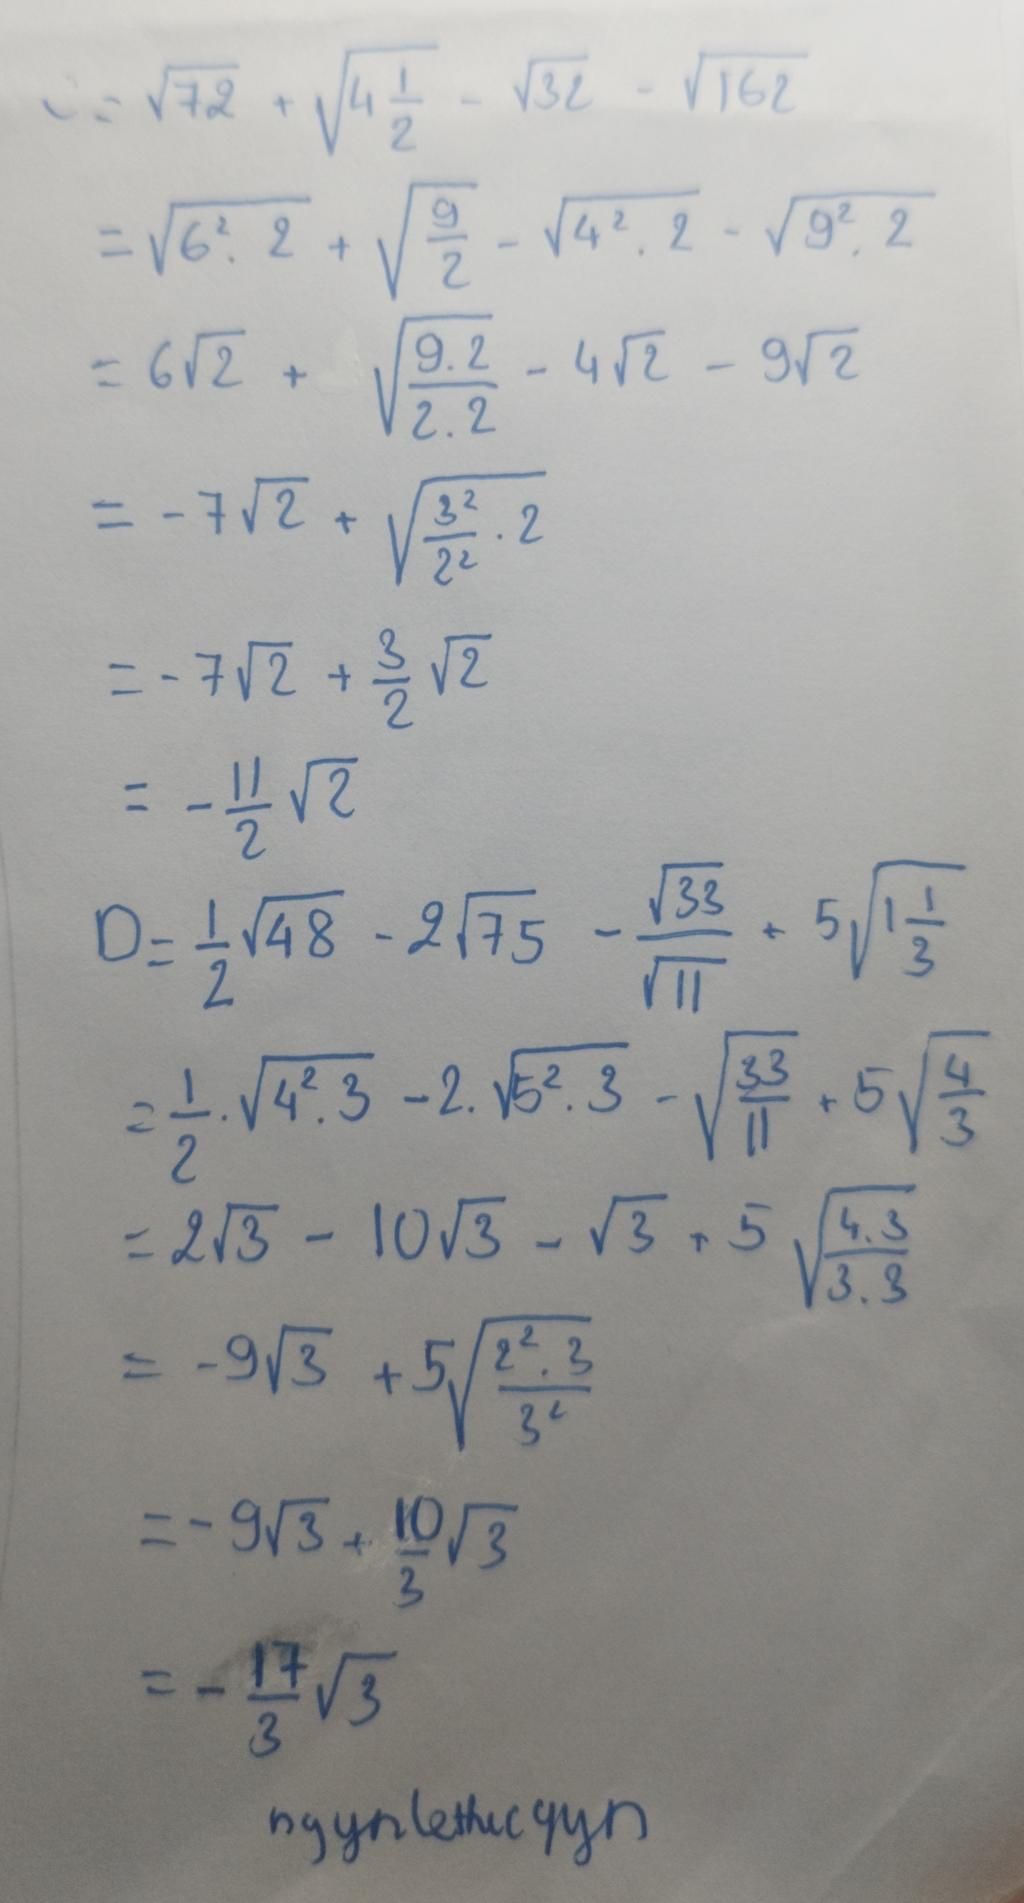 = √72 + √(4 1/2) - √32 - √162
= √(6². 2) + √(9/2) - √(4². 2) - √(9². 2)
= 6√2 + √((9.2)/(2.2)) - 4√2 - 9√2
= -7√2 + √(3²/2² . 2)
= -7√2 + 3/2 √2
= -11/2 √2
D = 1/2 √48 - 2√75 - √33/√11 + 5√(1 1/3)
= 1/2 . √(4².3) - 2. √(5².3) - √(33/11) + 5√(4/3)
= 2√3 - 10√3 - √3 + 5 √((4.3)/(3.3))
= -9√3 + 5√((2².3)/3²)
= -9√3 + 10/3 √3
= -17/3 √3